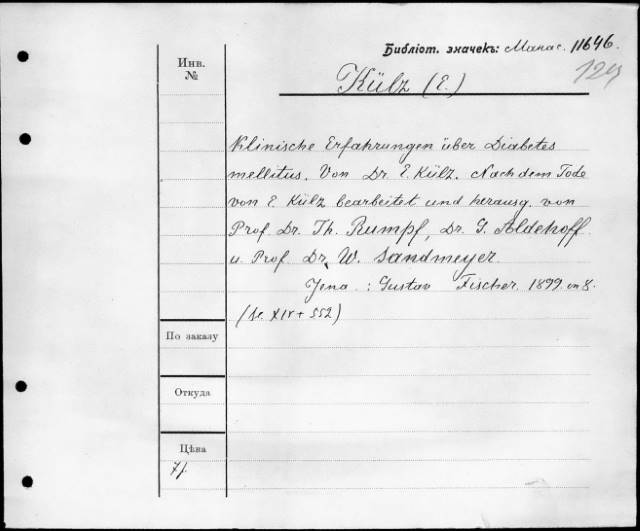 Библіот. значекъ: Манас. 11646.
129
Инв.
№
Külz (E.)
Klinische Erfahrungen über Diabetes
mellitus. Von Dr. E. Külz. Nach dem Tode
von E. Külz bearbeitet und herausg. von
Prof. Dr. Th. Rumpf, Dr. G. Aldehoff
u. Prof. Dr. W. Sandmeyer.
Jena : Gustav Fischer. 1899. in 8.
( XIV + 552)
По заказу
Откуда
Цѣна